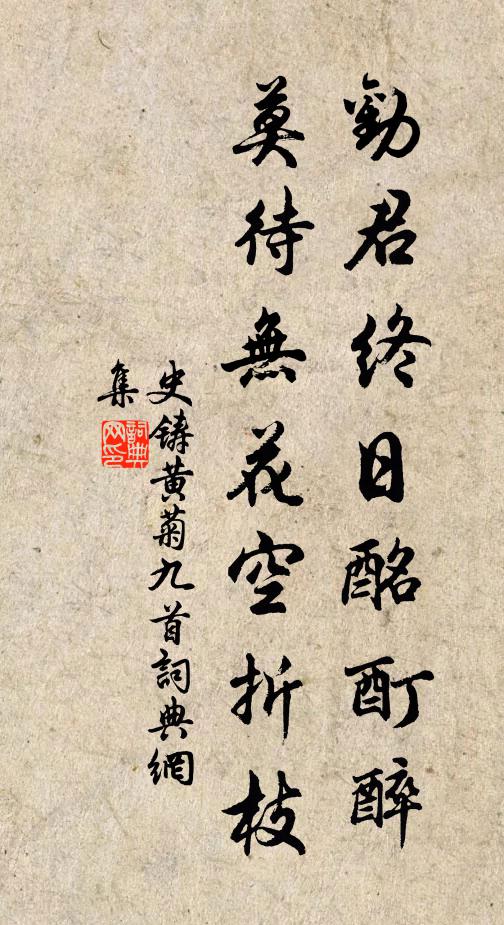 勸君終日酩酊醉
莫待無花空折枝
史鑄黃菊九首詞典網
集
詞典网印